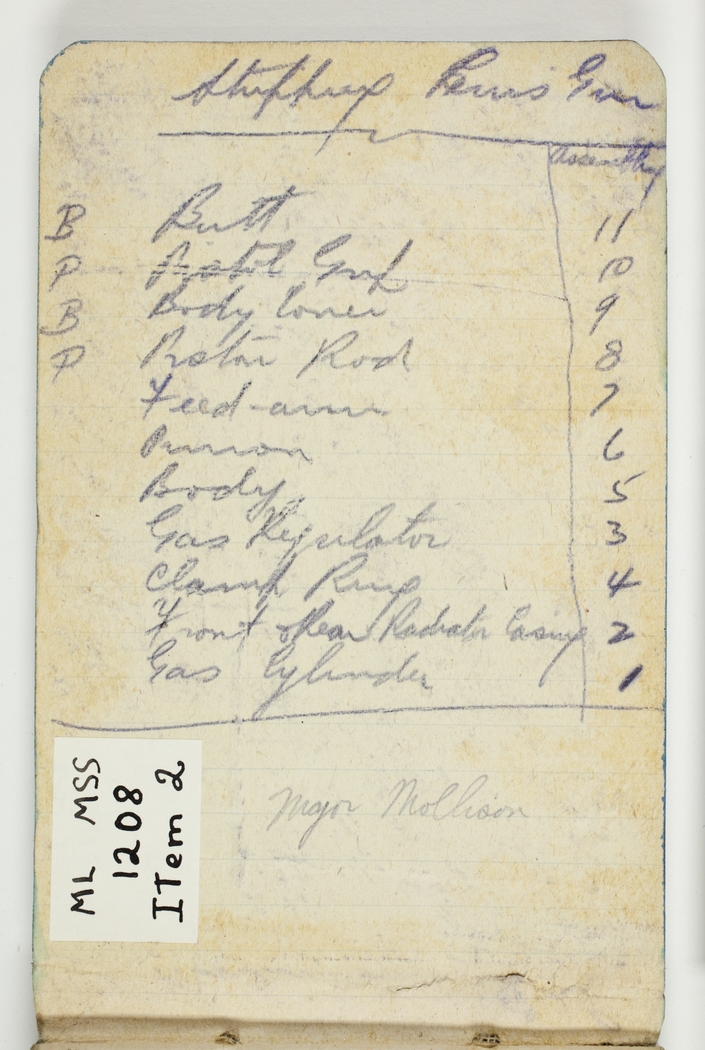 Stripping Lewis Gun
Assembly
B Butt 11
P Pistol Grip 10
B Body Cover 9
P Piston Rod 8
Feed-arm 7
Pinion 6
Body 5
Gas Regulator 3
Clamp Ring 4
Front & Rear Radiator Casing 2
Gas Cylinder 1
Major Mollison
ML MSS
1208
ITem 2